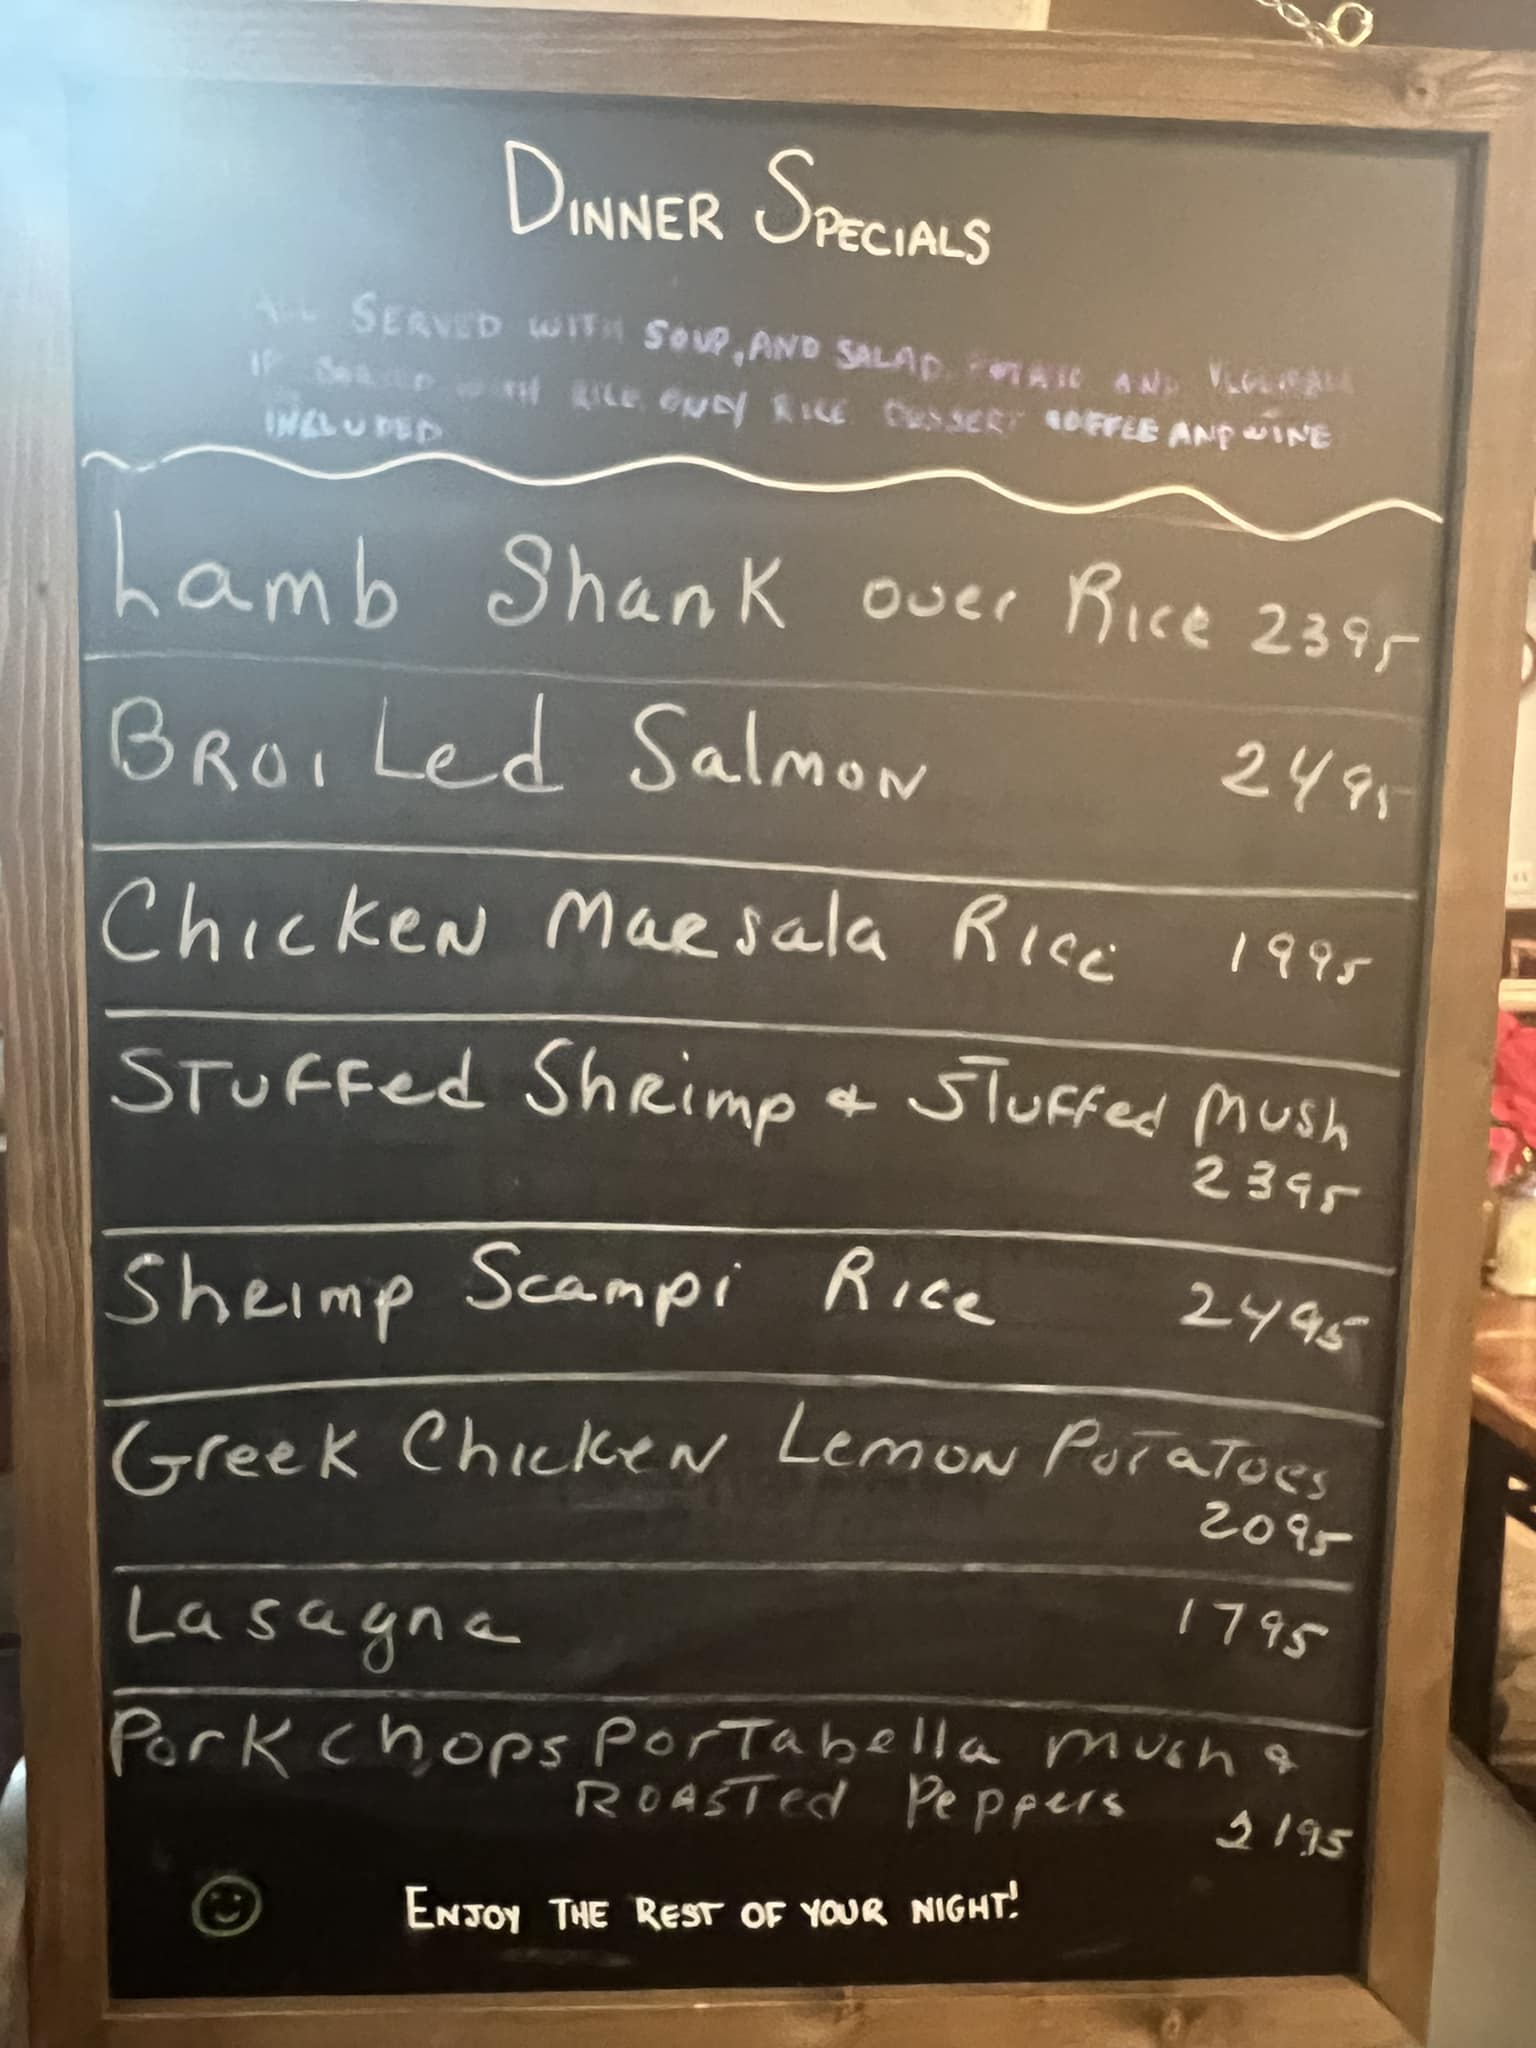 DINNER SPECIALS
ALL SERVED WITH SOUP, AND SALAD POTATO AND VEGETABLE
IF SERVED WITH RICE ONLY RICE DESSERT COFFEE AND WINE
INCLUDED
Lamb Shank over Rice 2395
BROILed Salmon 2495
Chicken Marsala Rice 1995
STuffed Shrimp & STuffed Mush
2395
Shrimp Scampi Rice 2495
Greek Chicken Lemon PoTaToes
2095
Lasagna 1795
Pork chops PorTabella mush &
ROASTed Peppers
2195
ENJOY THE REST OF YOUR NIGHT!